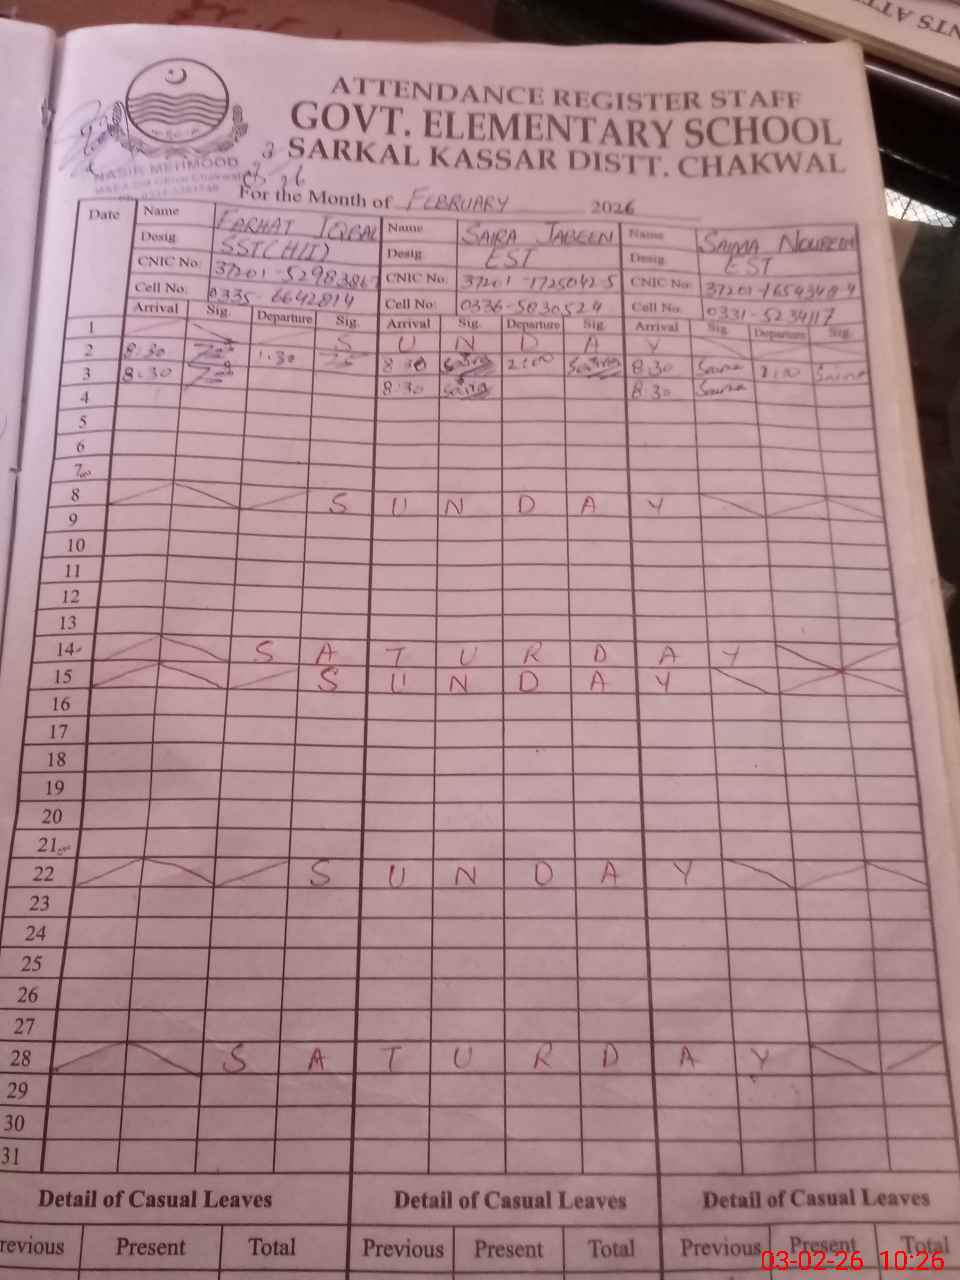 ATTENDANCE REGISTER STAFF
GOVT. ELEMENTARY SCHOOL
SARKAL KASSAR DISTT. CHAKWAL
NASIR MEHMOOD
For the Month of FEBRUARY 2026
Date Name FARHAT IQBAL Name SAIRA JABEEN Name SAIMA NOUREEN
Desig SST(HIT) Desig EST Desig EST
CNIC No: 37201-5298386 CNIC No: 37201-1725042-5 CNIC No: 37201-1654348-4
Cell No: 0335-6642814 Cell No: 0336-5830524 Cell No: 0331-5234117
Arrival Sig. Departure Sig. Arrival Sig. Departure Sig. Arrival Sig. Departure Sig.
1 S U N D A Y
2 8:30 1:30 8:30 Saira 2:00 Saira 8:30 Saima 2:00 Saima
3 8:30 8:30 Saira 8:30 Saima
4
5
6
7
8 S U N D A Y
9
10
11
12
13
14 S A T U R D A Y
15 S U N D A Y
16
17
18
19
20
21
22 S U N D A Y
23
24
25
26
27
28 S A T U R D A Y
29
30
31
Detail of Casual Leaves Detail of Casual Leaves Detail of Casual Leaves
revious Present Total Previous Present Total Previous Present Total
03-02-26 10:26